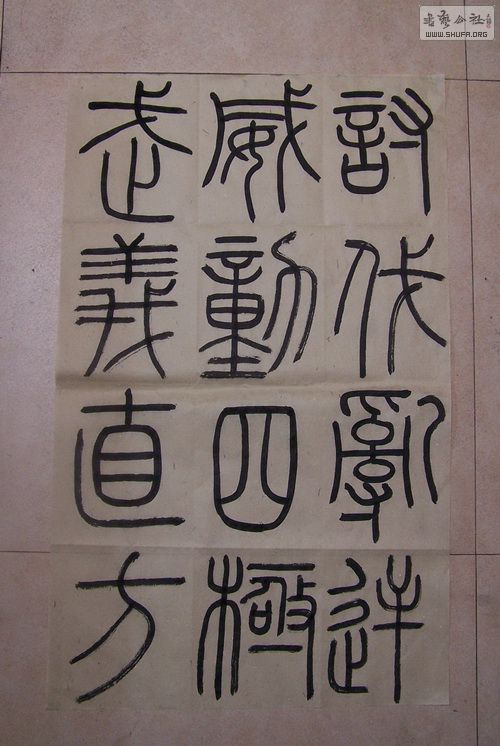 討伐亂逆
威動四極
武義直方
書藝公社
WWW.SHUFA.ORG